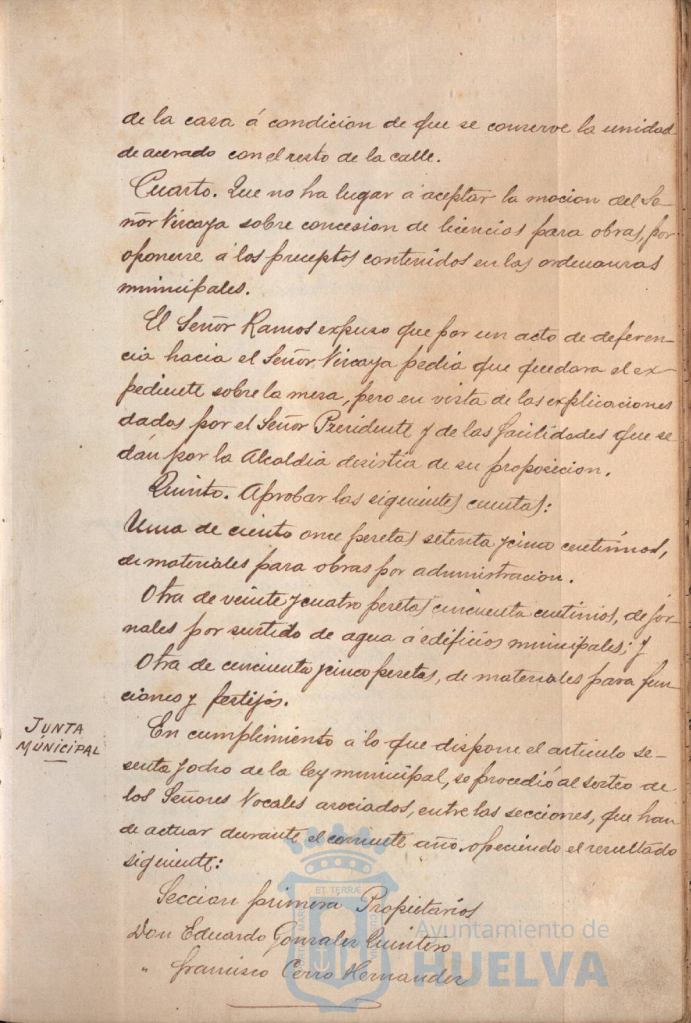 de la casa á condicion de que se conserve la unidad
de acerado con el resto de la calle.
Cuarto. Que no ha lugar á aceptar la mocion del Se-
ñor Vizcaya sobre concesion de licencias para obras, por
oponerse á los preceptos contenidos en las ordenanzas
municipales.
El Señor Ramos expuso que por un acto de deferen-
cia hacia el Señor Vizcaya pedia que quedara el ex-
pediente sobre la mesa, pero en vista de las explicaciones
dadas por el Señor Presidente y de las facilidades que se
dán por la Alcaldia desistia de su proposicion.
Quinto. Aprobar las siguientes cuentas:
Una de ciento once pesetas setenta y cinco centimos,
de materiales para obras por administracion.
Otra de veinte y cuatro pesetas cincuenta centimos, de jor-
nales por surtido de agua á edificios municipales; y
Otra de cincuenta y cinco pesetas, de materiales para fun-
ciones y festejos.
JUNTA
MUNICIPAL
En cumplimiento á lo que dispone el articulo se-
senta y ocho de la ley municipal, se procedió al sorteo de
los Señores Vocales asociados, entre las secciones, que han
de actuar durante el corriente año ofreciendo el resultado
siguiente:
Seccion primera Propietarios
Don Eduardo Gonzalez Quintero
" Francisco Cerro Hernandez
ET TERRÆ
Ayuntamiento de
HUELVA